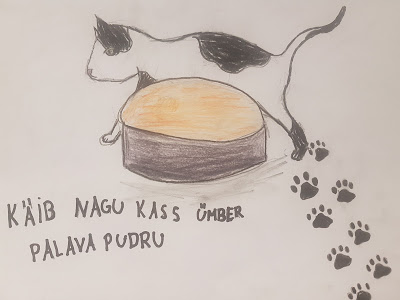 KÄIB NAGU KASS ÜMBER
PALAVA PUDRU